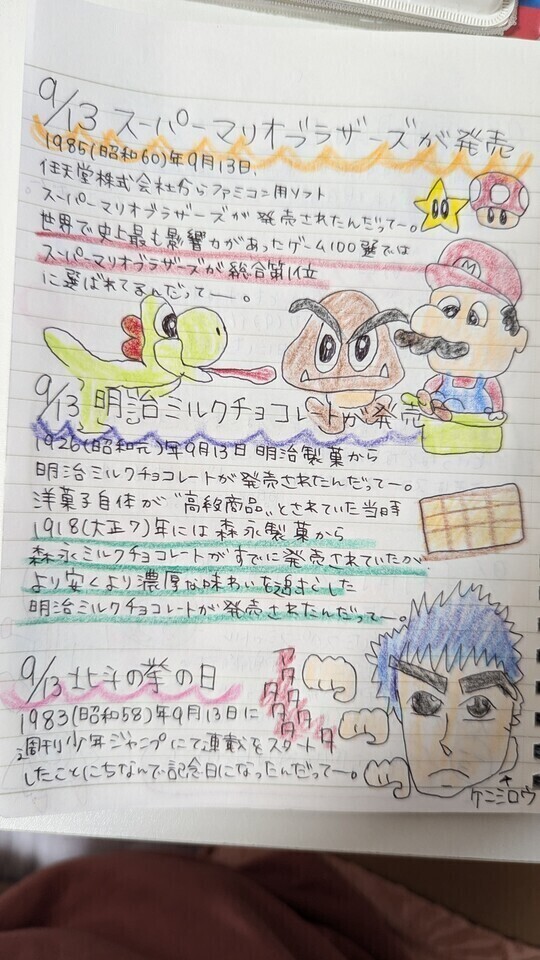 9/13 スーパーマリオブラザーズが発売
1985(昭和60)年9月13日、
任天堂株式会社からファミコン用ソフト
スーパーマリオブラザーズが発売されたんだってー。
世界で史上最も影響力があったゲーム100選では
スーパーマリオブラザーズが総合第1位
に選ばれてるんだってー。
M
9/13 明治ミルクチョコレートが発売
1926(昭和元)年9月13日 明治製菓から
明治ミルクチョコレートが発売されたんだってー。
洋菓子自体が"高級商品"とされていた当時
1918(大正7)年には森永製菓から
森永ミルクチョコレートがすでに発売されていたが
より安くより濃厚な味わいを追求した
明治ミルクチョコレートが発売されたんだってー。
9/13 北斗の拳の日
1983(昭和58)年9月13日に
週刊少年ジャンプにて連載をスタート
したことにちなんで記念日になったんだってー。
タタタタタタタ
ケンシロウ